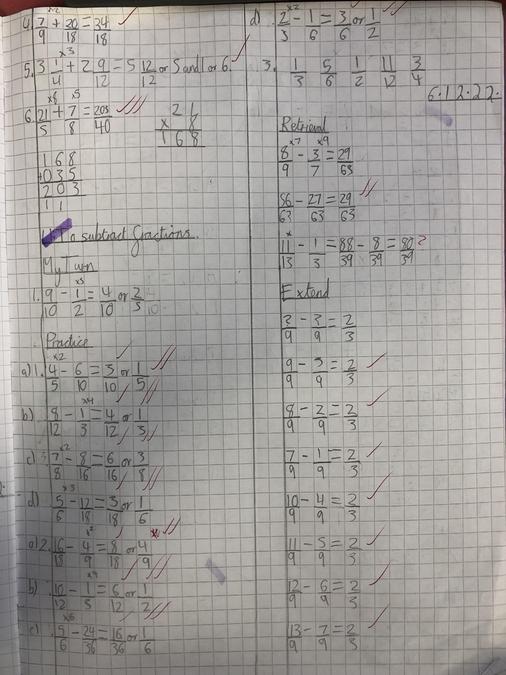 4. 7/9 + 20/18 = 34/18
5. 3 1/4 + 2 9/12 = 5 12/12 or 5 and 1 or 6.
6. 21/5 + 7/8 = 203/40
21
x 8
168
168
+035
203
11
To subtract fractions.
My Turn
1. 9/10 - 1/2 = 4/10 or 2/5
Practice
a) 1. 4/5 - 6/10 = 3/10 or 1/5
b) 8/12 - 1/3 = 4/12 or 1/3
c) 7/8 - 8/16 = 6/16 or 3/8
d) 5/6 - 12/18 = 3/18 or 1/6
a) 2. 16/18 - 4/9 = 8/18 or 4/9
b) 10/12 - 1/3 = 6/12 or 1/2
c) 5/6 - 24/36 = 16/36 or 1/6
d) 2/3 - 1/6 = 3/6 or 1/2
3. 1/3 5/6 1/2 11/12 3/4
6.12.22.
Retrieval
8/9 - 3/7 = 29/63
56/63 - 27/63 = 29/63
11/13 - 1/3 = 88/39 - 8/39 = 80/39
Extend
3/9 - 3/9 = 2/3
9/9 - 3/9 = 2/3
8/9 - 2/9 = 2/3
7/9 - 1/9 = 2/3
10/9 - 4/9 = 2/3
11/9 - 5/9 = 2/3
12/9 - 6/9 = 2/3
13/9 - 7/9 = 2/3